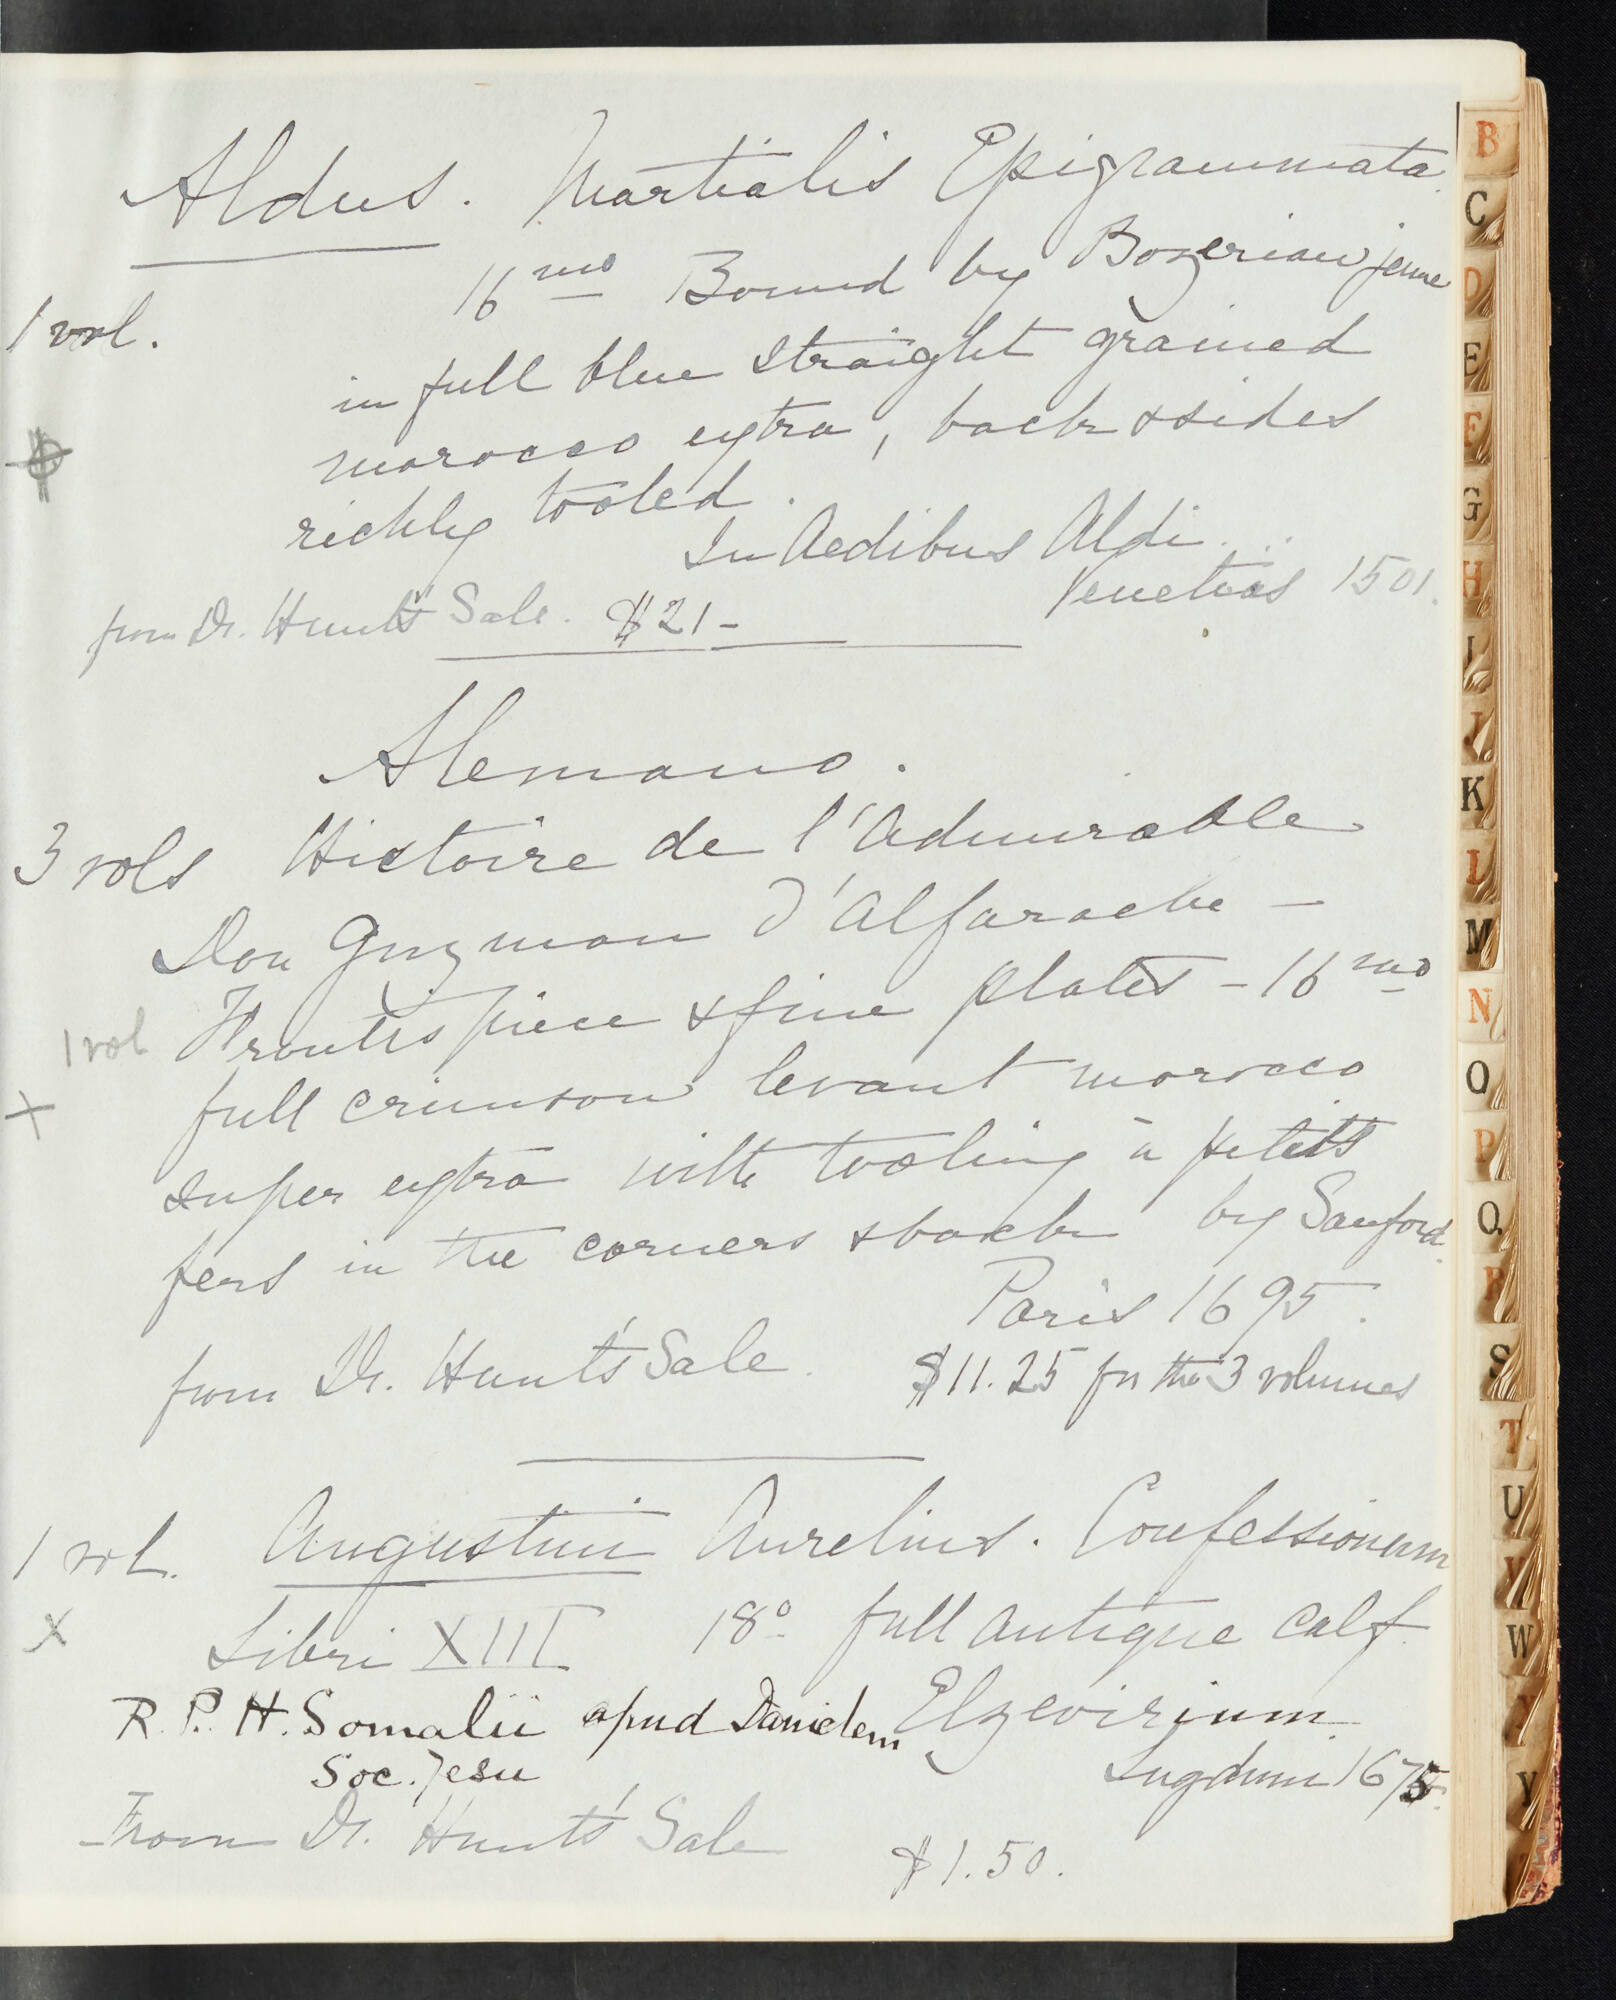 Aldus. Martialis Epigrammata.
16mo Bound by Bozerian jeune
1 vol.
in full blue straight grained
morocco extra, back & sides
richly tooled.
In Aedibus Aldi.
Venetiis 1501.
from Dr. Hunt's Sale. $21-
Alemano.
3 vols Histoire de l'Admirable
Don Guzman d'Alfarache -
1 vol Frontispiece & fine plates - 16mo
full crimson levant morocco
super extra with tooling à petits
fers in the corners & back by Sanford.
Paris 1695.
from Dr. Hunt's Sale. $11.25 for the 3 volumes
1 vol. Augustini Aurelius. Confessionum
X
Libri XIII 18o full antique calf.
R. P. H. Somalii apud Danielem Elzevirium
Soc. Jesu Lugduni 1675.
From Dr. Hunt's Sale
$1.50.
B
C
D
E
F
G
H
I
J
K
L
M
N
O
P
Q
R
S
T
U
V
W
X
Y